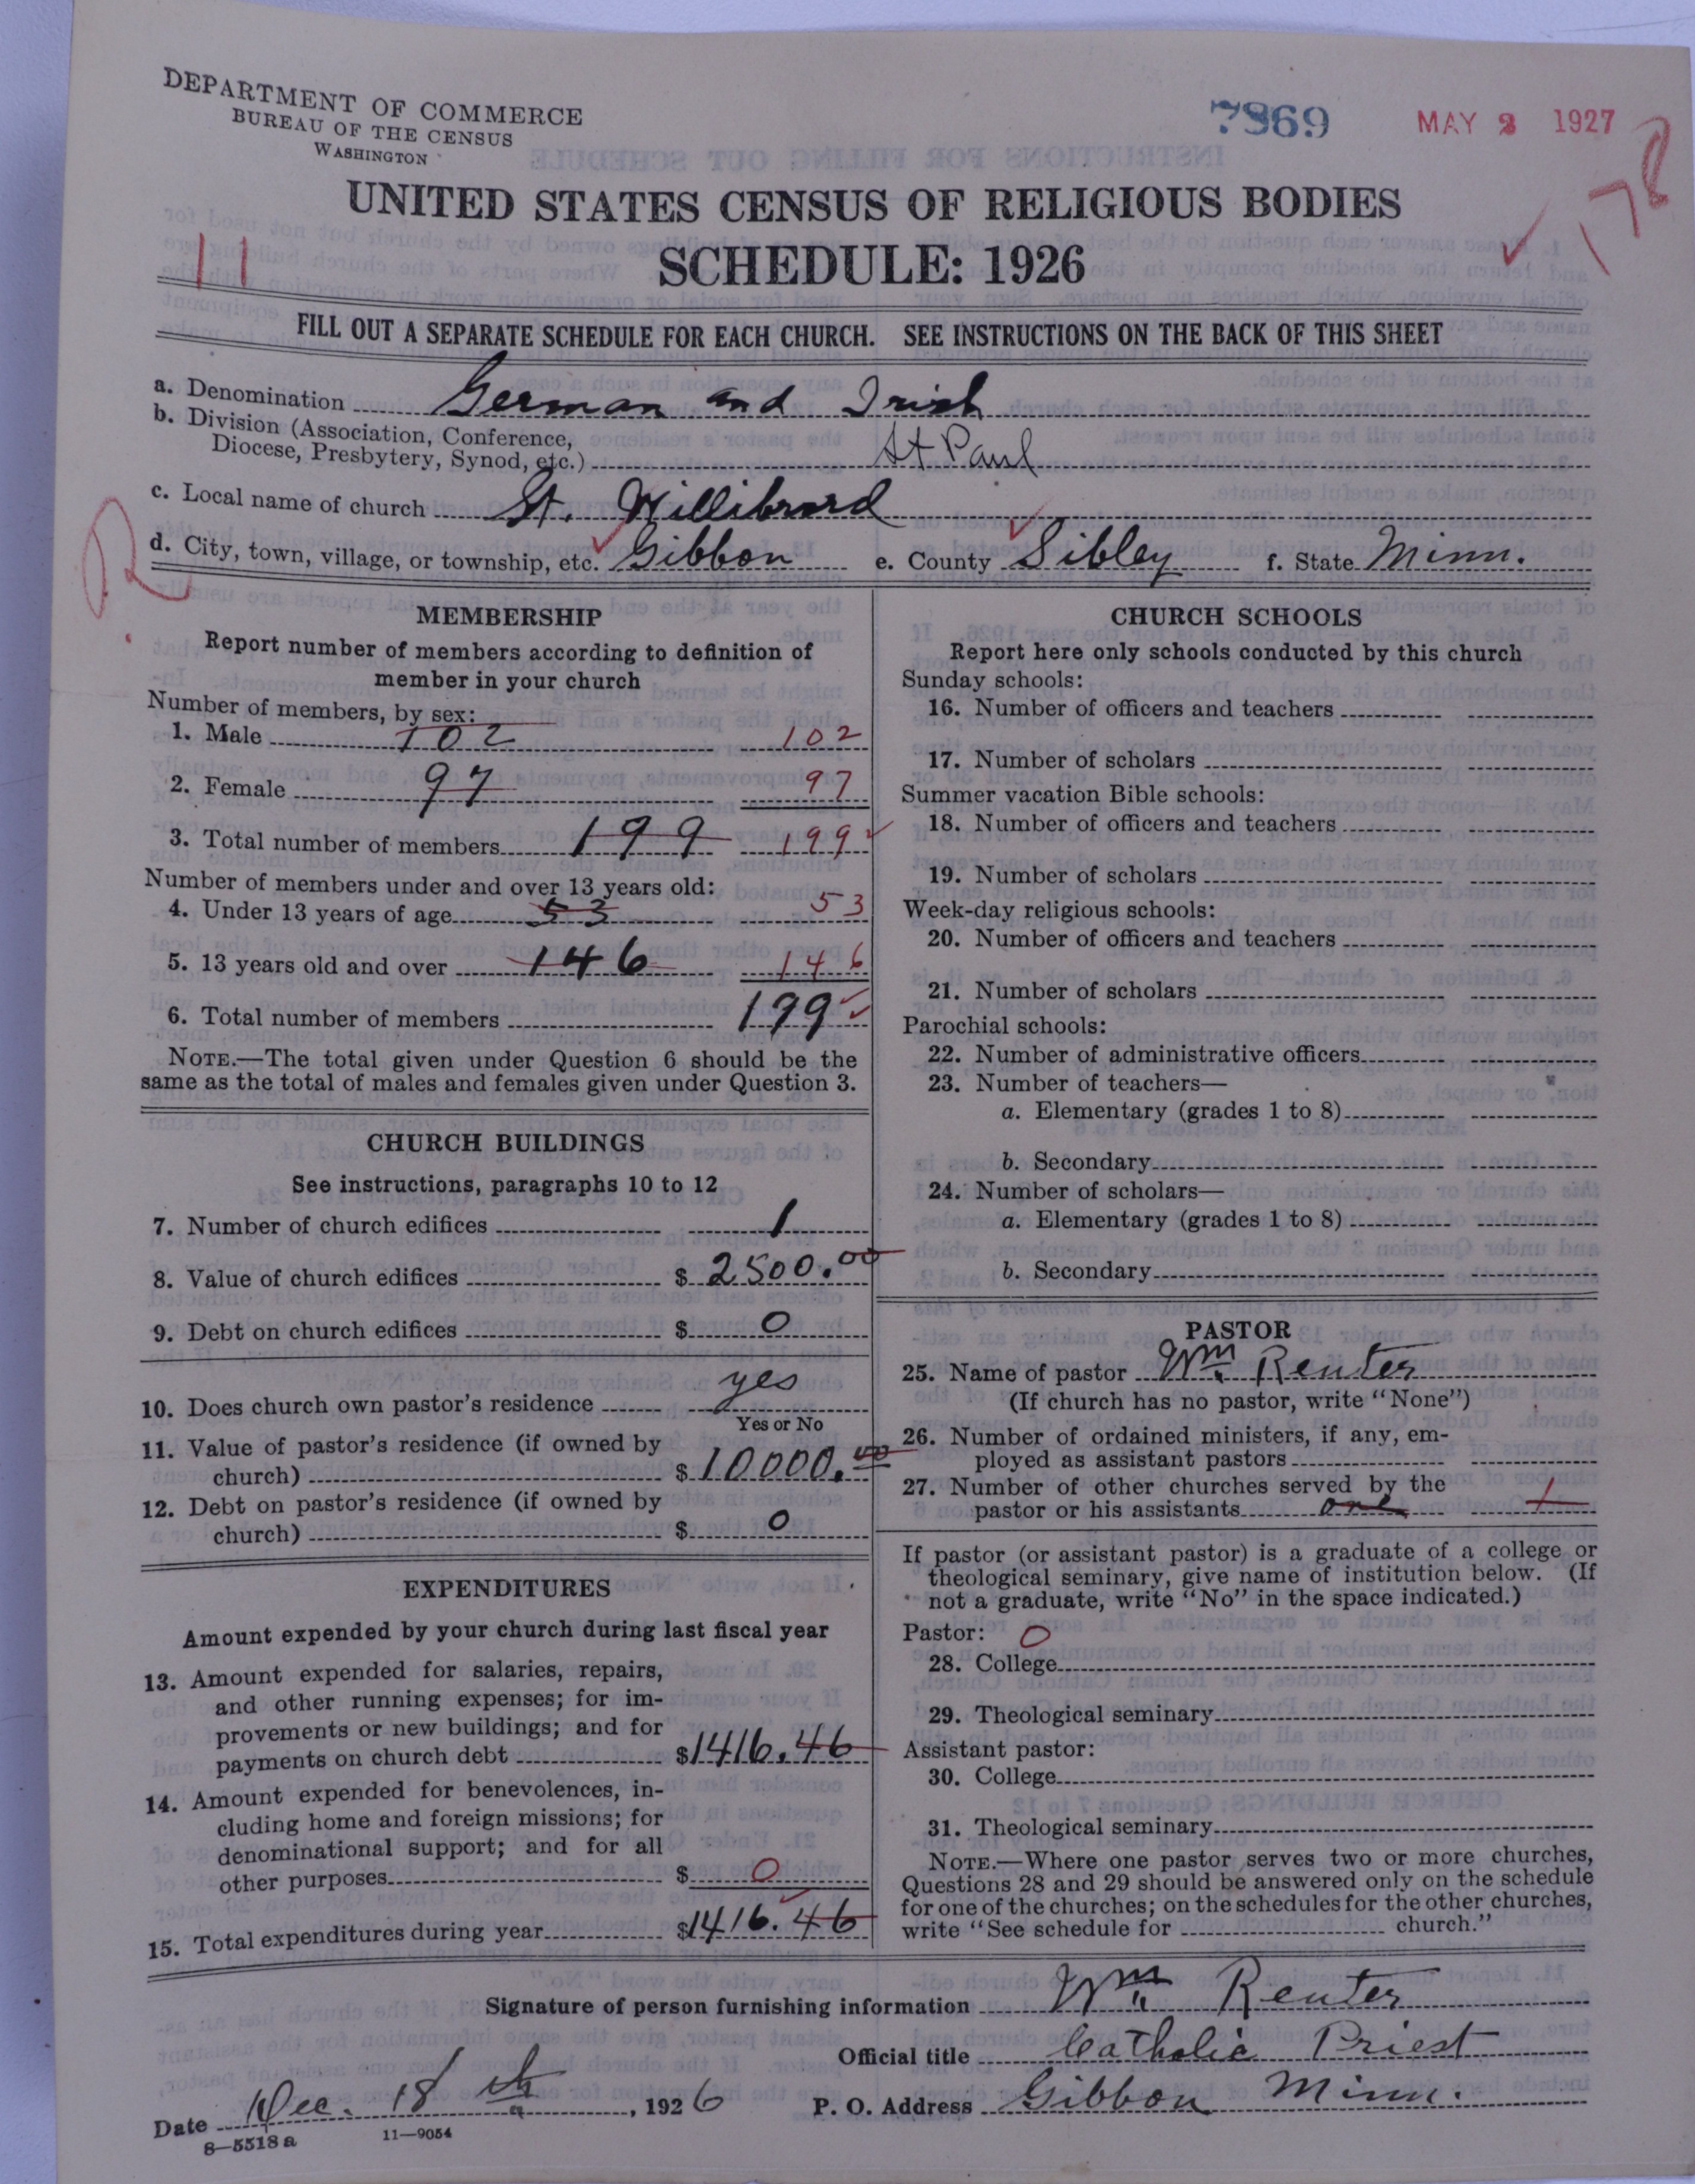 DEPARTMENT OF COMMERCE
BUREAU OF THE CENSUS
WASHINGTON
7869
MAY 2 1927
178
UNITED STATES CENSUS OF RELIGIOUS BODIES
11
SCHEDULE: 1926
FILL OUT A SEPARATE SCHEDULE FOR EACH CHURCH. SEE INSTRUCTIONS ON THE BACK OF THIS SHEET
a. Denomination German and Irish
b. Division (Association, Conference,
Diocese, Presbytery, Synod, etc.) St Paul
c. Local name of church St. Willibrord
R
d. City, town, village, or township, etc. Gibbon e. County Sibley f. State Minn.
MEMBERSHIP
Report number of members according to definition of
member in your church
Number of members, by sex:
1. Male 102 102
2. Female 97 97
3. Total number of members 199 199
Number of members under and over 13 years old:
4. Under 13 years of age 53 53
5. 13 years old and over 146 146
6. Total number of members 199
NOTE.—The total given under Question 6 should be the
same as the total of males and females given under Question 3.
CHURCH BUILDINGS
See instructions, paragraphs 10 to 12
7. Number of church edifices 1
8. Value of church edifices $ 2500.00
9. Debt on church edifices $ 0
10. Does church own pastor's residence yes
Yes or No
11. Value of pastor's residence (if owned by
church) $ 10000.00
12. Debt on pastor's residence (if owned by
church) $ 0
EXPENDITURES
Amount expended by your church during last fiscal year
13. Amount expended for salaries, repairs,
and other running expenses; for im-
provements or new buildings; and for
payments on church debt $1416.46
14. Amount expended for benevolences, in-
cluding home and foreign missions; for
denominational support; and for all
other purposes $ 0
15. Total expenditures during year $1416.46
CHURCH SCHOOLS
Report here only schools conducted by this church
Sunday schools:
16. Number of officers and teachers
17. Number of scholars
Summer vacation Bible schools:
18. Number of officers and teachers
19. Number of scholars
Week-day religious schools:
20. Number of officers and teachers
21. Number of scholars
Parochial schools:
22. Number of administrative officers
23. Number of teachers—
a. Elementary (grades 1 to 8)
b. Secondary
24. Number of scholars—
a. Elementary (grades 1 to 8)
b. Secondary
PASTOR
25. Name of pastor Wm. Renter
(If church has no pastor, write "None")
26. Number of ordained ministers, if any, em-
ployed as assistant pastors
27. Number of other churches served by the
pastor or his assistants one 1
If pastor (or assistant pastor) is a graduate of a college or
theological seminary, give name of institution below. (If
not a graduate, write "No" in the space indicated.)
Pastor: 0
28. College
29. Theological seminary
Assistant pastor:
30. College
31. Theological seminary
NOTE.—Where one pastor serves two or more churches,
Questions 28 and 29 should be answered only on the schedule
for one of the churches; on the schedules for the other churches,
write "See schedule for church."
Signature of person furnishing information Wm. Renter
Official title Catholic Priest
Date Dec. 18th, 1926 P. O. Address Gibbon Minn.
8—5518 a 11—9054